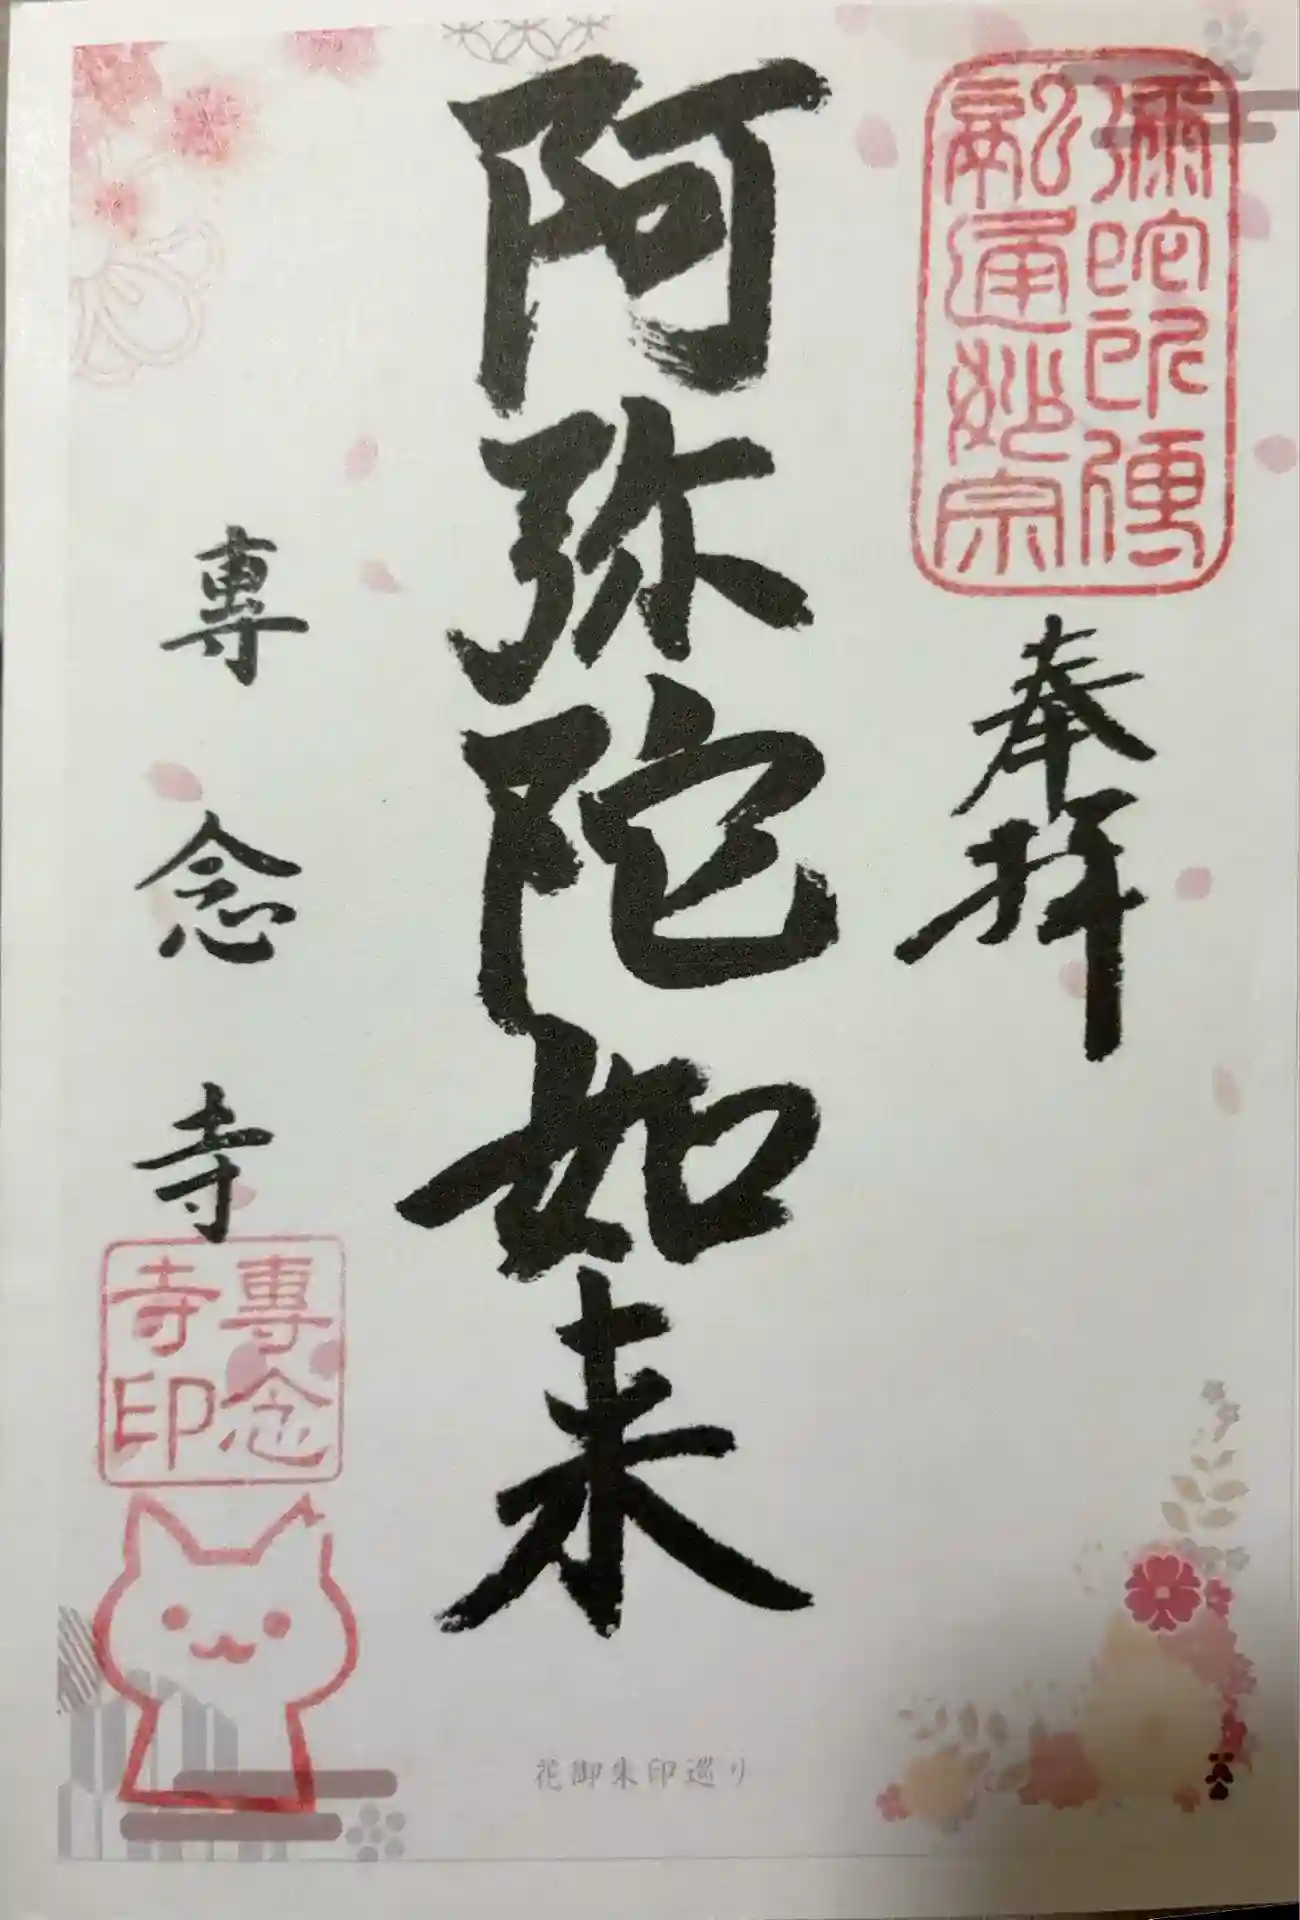 彌陀所傳
融通妙宗
奉拝
阿弥陀如来
專念寺
專念
寺印
花御朱印巡り